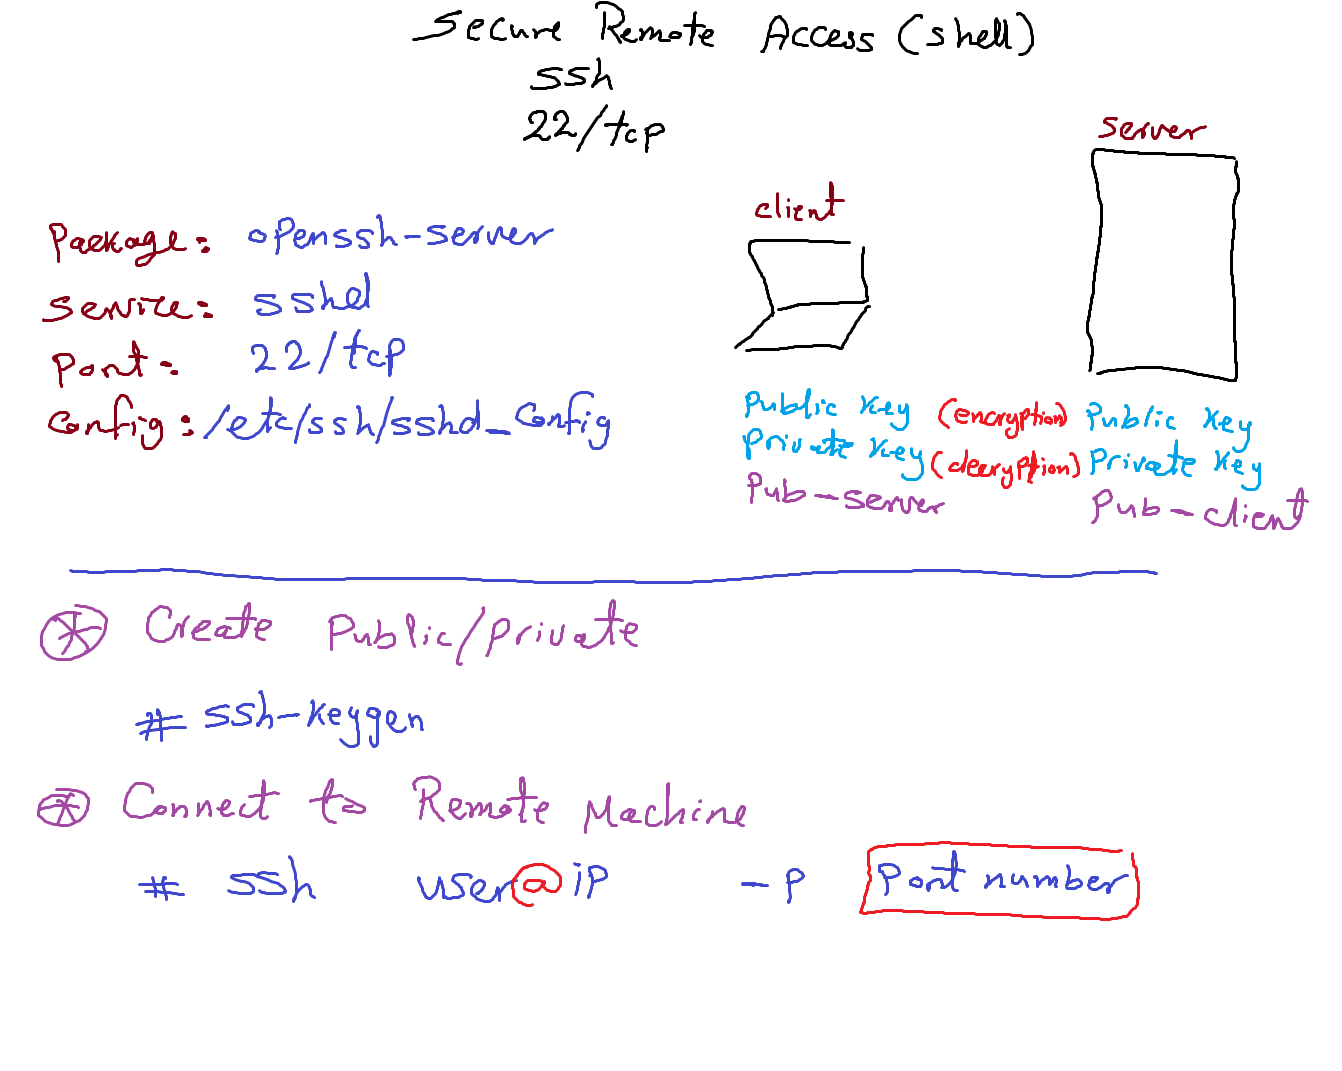 Secure Remote Access (shell)
ssh
22/tcp
Package: openssh-server
Service: sshd
Port: 22/tcp
Config: /etc/ssh/sshd_Config
client
server
Public Key (encryption) Public Key
Private Key (decryption) Private Key
Pub-server Pub-client
* Create Public/Private
# ssh-keygen
* Connect to Remote Machine
# ssh user@ip -p Port number